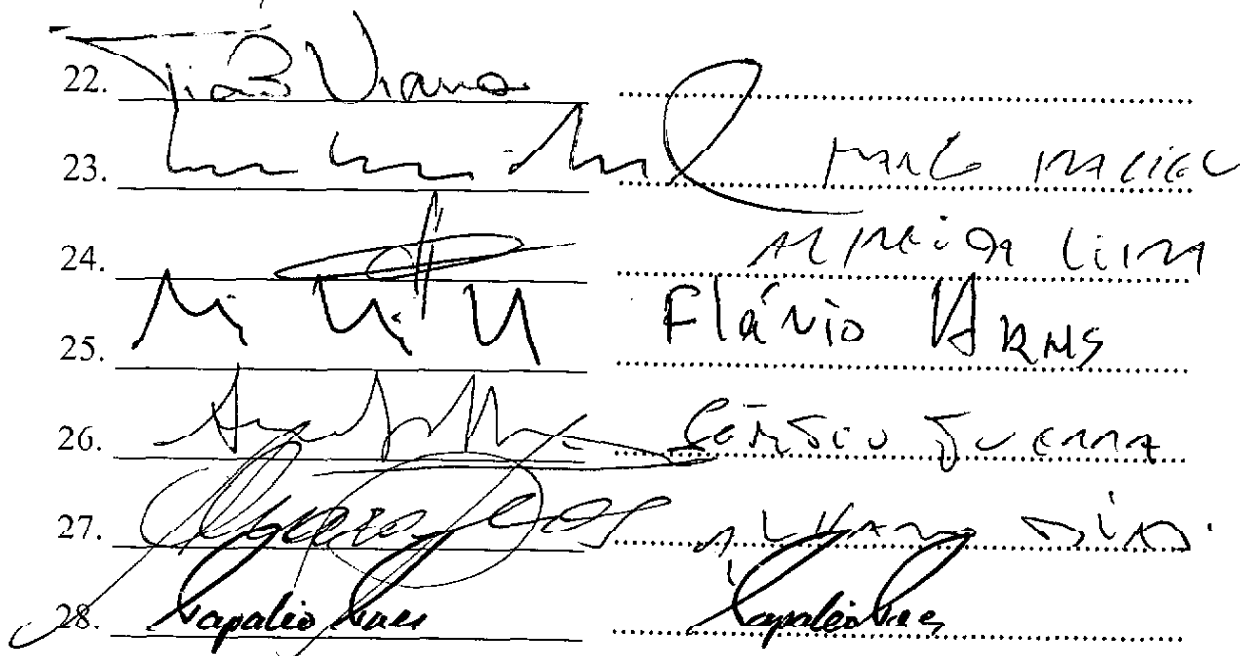 22. Tião Viana
23. MARCO MACIEL
24. ALMEIDA LIMA
25. Flávio ARNS
26. SÉRGIO GUERRA
27. ALVARO DIAS.
28. Papaléo Paes Papaléo Paes